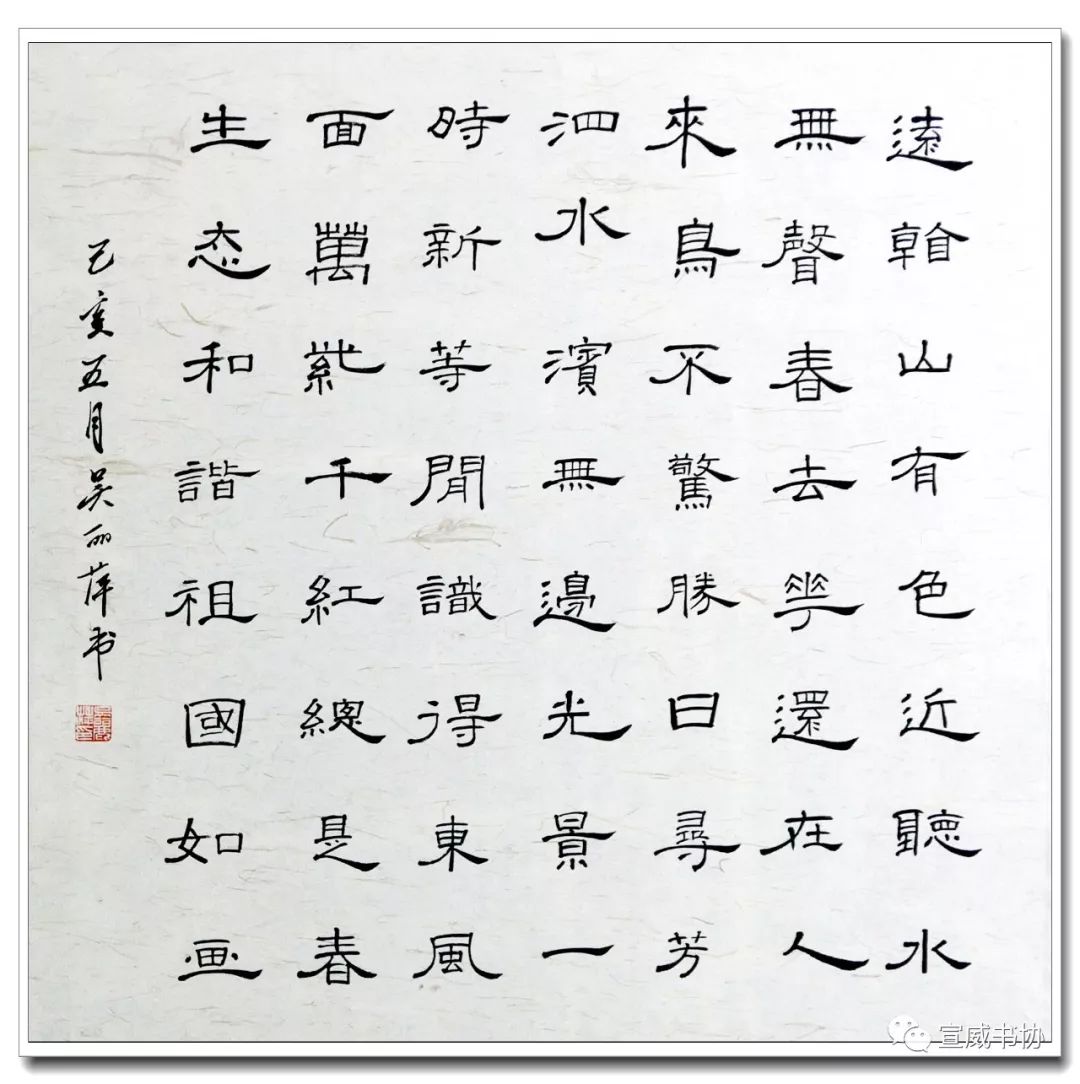 遠看山有色近聽水
無聲春去花還在人
來鳥不驚勝日尋芳
泗水濱無邊光景一
時新等閒識得東風
面萬紫千紅總是春
生态和諧祖國如画
己亥五月吴丽萍书
宣威书协